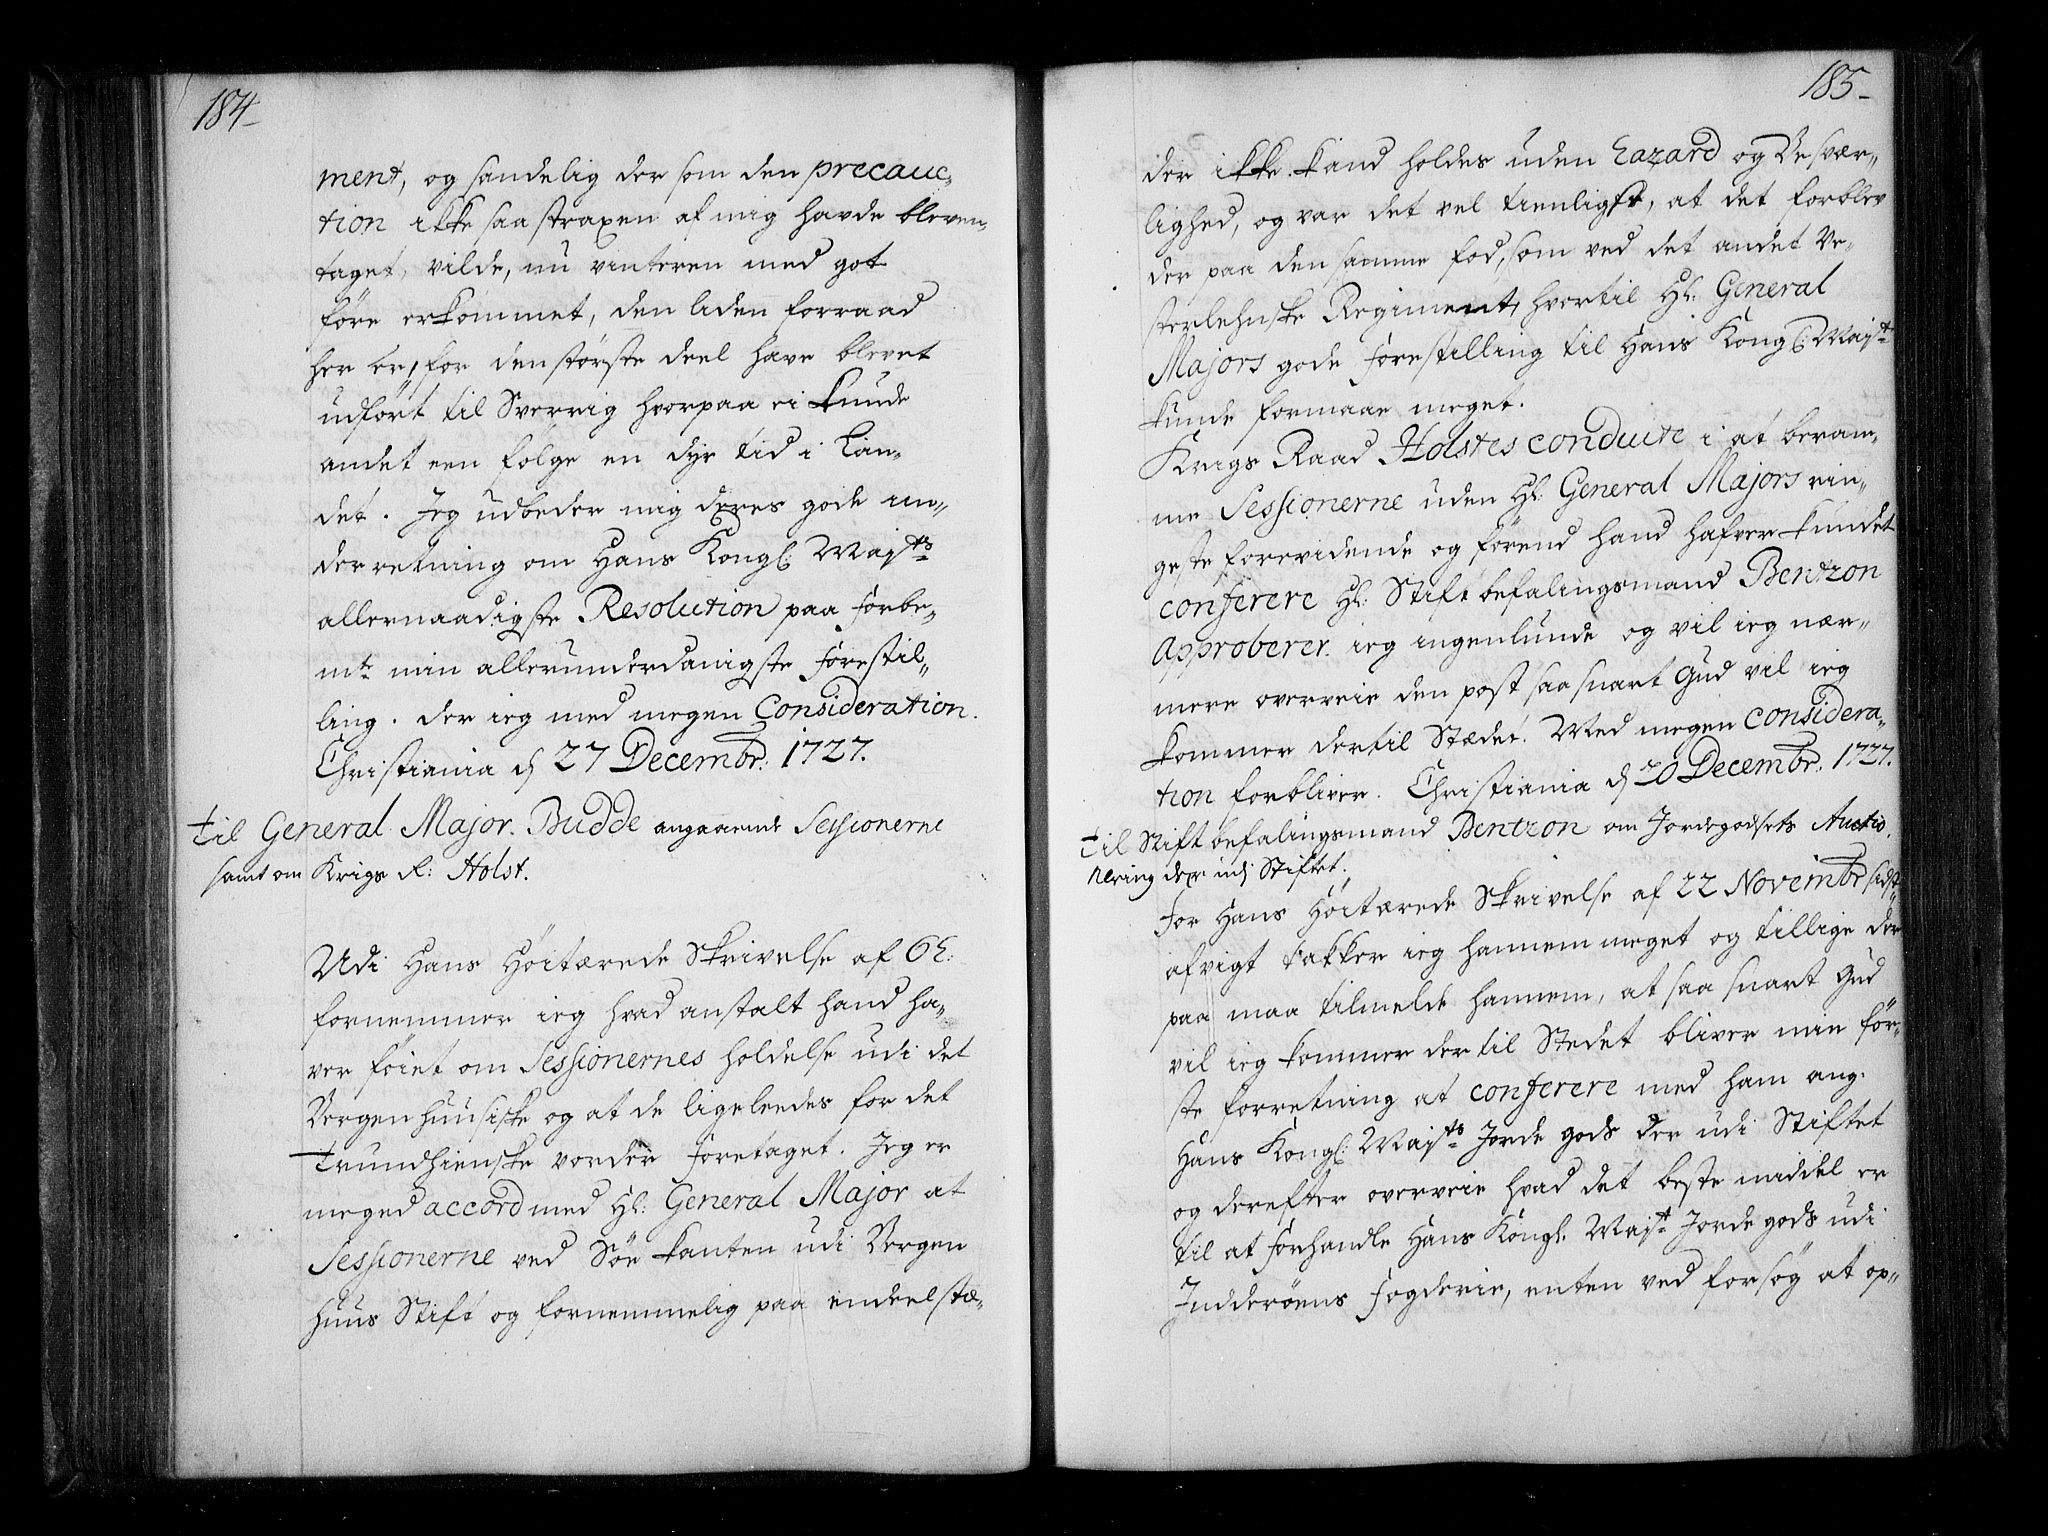 184
ment, og sandelig der som den precauc-
tion ikke saa straxen af mig havde bleven
taget, vilde, nu vinteren med got
føre erkommet, den liden forraad
her er, for den største deel have blevet
udført til Sverrig hvorpaa ei kunde
andet een følge en dyr tid i Lan-
det. Jeg udbeder mig deres gode un-
derretning om Hans Kongl: Maj:ts
allernaadigste Resolution paa forbe-
m:te min allerunderdanigste forestil-
ling. der ieg med megen Consideration.
Christiania d 27 Decembr: 1727.
til General Major Budde angaaende Sessionerne
samt om Krigs R: Holst.
Udi Hans Høitærede Skrivelse af 6 h:
fornemmer ieg hvad anstalt hand ha-
ver føiet om Sessionernes holdelse udi det
Bergenhuusiske og at de ligeleedes for det
Trundhienske vorder foretaget. Jeg er
meged accord med Hl: General Major at
Sessionerne ved Søe kanten udi Bergen
huus Stift og fornemmelig paa endeel stæ-
185
der ikke kand holdes uden Hazard og Besvær-
lighed, og var det vel tienligst, at det forblev
der paa den samme fod, som ved det andet Ve-
sterlehnske Regiment, hvortil Hl: General
Majors gode forestilling til Hans Kongl: Maj:t
kunde formaae meget.
Krigs Raad Holstes conduite i at beram-
me Sessionerne uden Hl: General Majors rin-
geste forevidende og førend hand hafver kundet
conferere Hl: Stiftbefalingsmand Bentzon
Approberer ieg ingenlunde og vil ieg nær-
mere overveie den post saa snart Gud vil ieg
kommer dertil Stædet. Med megen considera-
tion forbliver. Christiania d 20 Decembr: 1727.
til Stiftbefalingsmand Bentzon om Jordegodsets Auctio-
nering der udj Stiftet.
For Hans Høitærede Skrivelse af 22 Novembr sidst
afvigt takker ieg hannem meget og tillige der
paa maa tilmelde hannem, at saa snart Gud
vil ieg kommer der til Stedet bliver min før-
ste forretning at conferere med ham ang:
Hans Kongl: Maj:ts Jorde gods der udi Stiftet
og derefter overveie hvad det beste middel er
til at forhandle Hans Kongl. Maj:t Jorde gods udi
Indderøens Fogderie, enten ved forsøg at op-